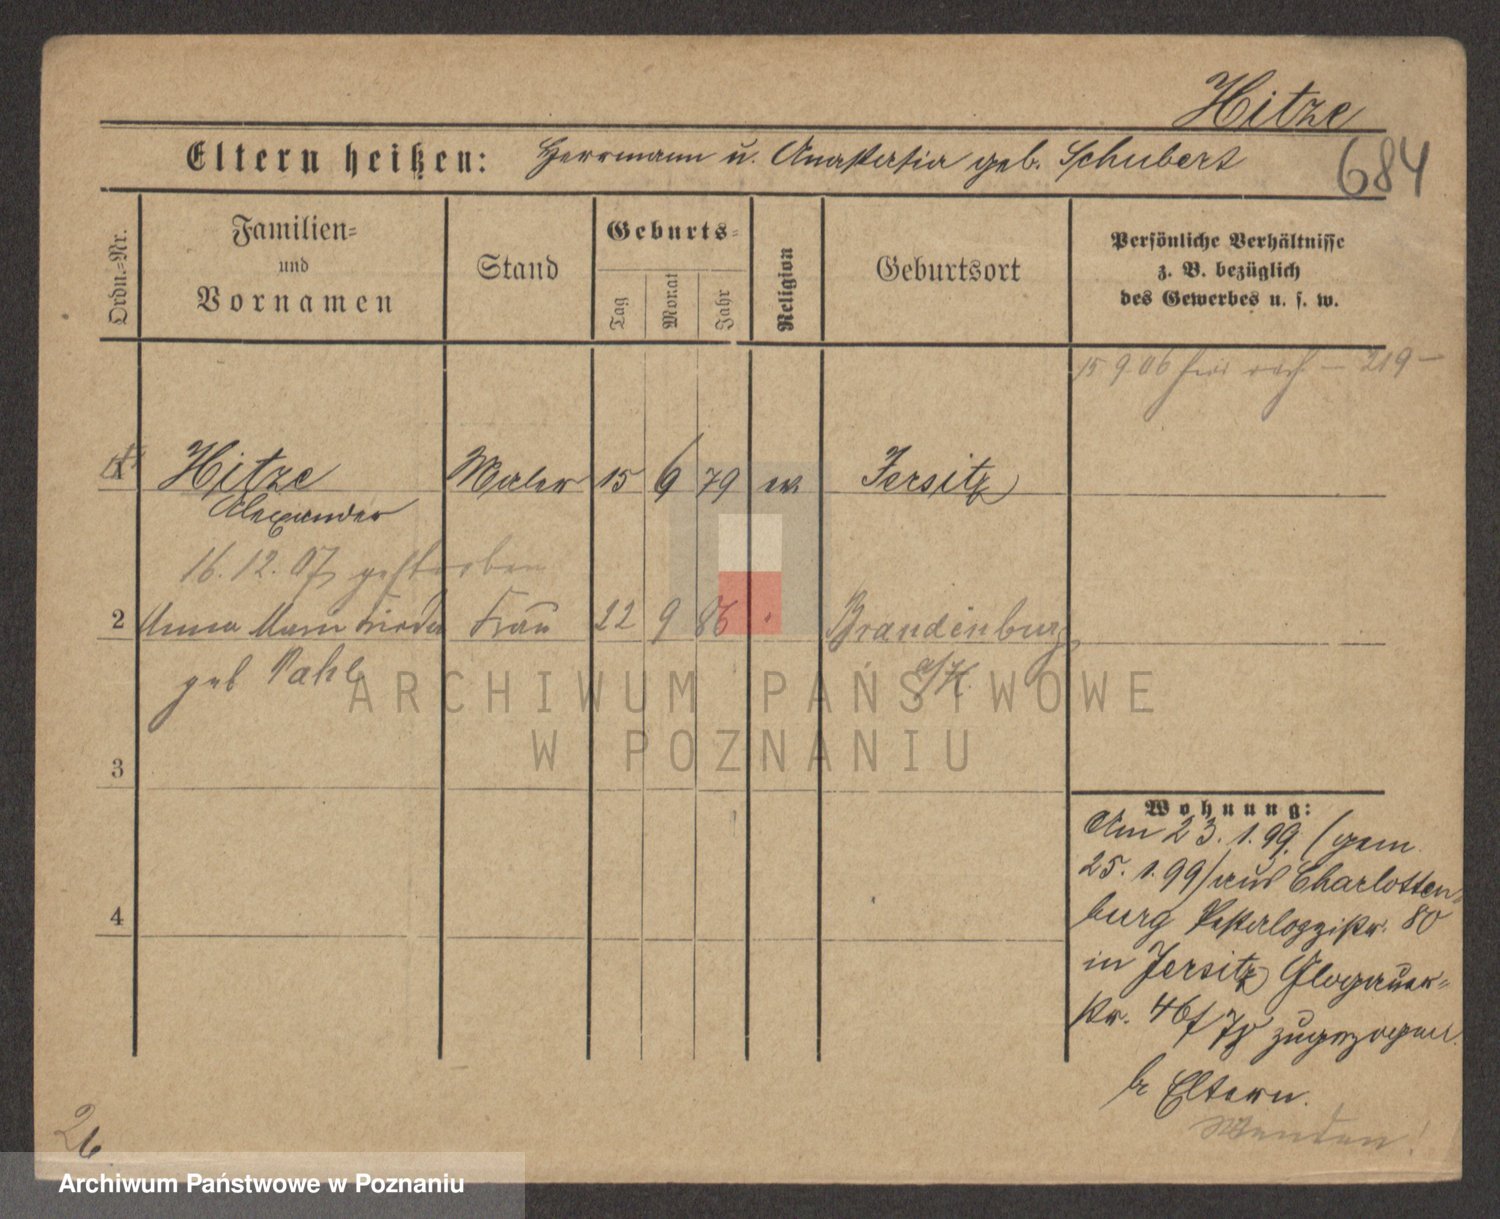 Hitze
684
Eltern heißen: Herrmann u. Anastasia geb. Schubert
Ordn.-Nr.
Familien-
und
Vornamen
Stand
Geburts-
Tag
Monat
Jahr
Religion
Geburtsort
Persönliche Verhältnisse
z. B. bezüglich
des Gewerbes u. s. w.
15 9 06 — 219 —
1 Hitze Maler 15 6 79 ev. Jersitz
Alexander
16.12.07 gestorben
2 Anna Frau 22 9 86 Brandenburg
geb Pahl a/H.
ARCHIWUM PAŃSTWOWE
W POZNANIU
3
4
Wohnung:
Am 23.1.99. (gem.
25.1.99) aus Charlotten-
burg Pestalozzistr. 80
in Jersitz Glogauer-
str. 46 zugezogen.
b. Eltern.
Wenden!
26.
Archiwum Państwowe w Poznaniu